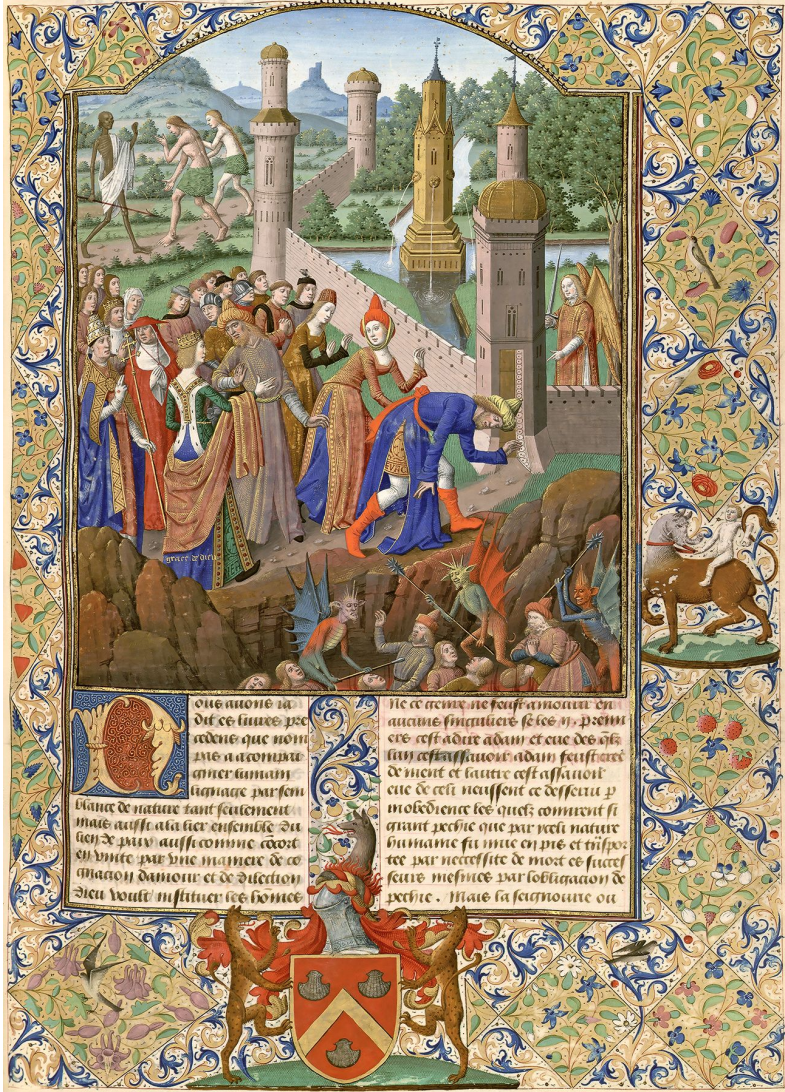 grace de dieu
Nous auons ia
dit es liures pre
cedens que non
pas a acompai
gnier lumain
lignage par sem
blance de nature tant seulement
mais aussi a la lier ensemble du
lien de paix aussi comme cōcort
en vnite par vne maniere de co
gnacion damour et de dilection
dieu voult instituer les hōmes
ne ce genre ne feust amourir en
aucuns singuliers se les .ij. premiers
cest adire adam et eue des q̄lz
lun cestassauoir adam feust cree
de nient et lautre cestassauoir
eue de celi neussent ce desserui p
inobedience les quelz commirent si
grant pechie que par iceli nature
humaine fu mue en pis et trāspor
tee par necessite de mort es succes
seurs mesmes par lobligacion de
pechie . Mais la seignourie ou